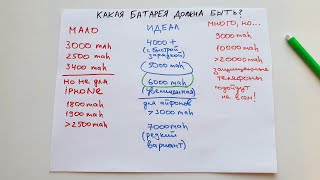 КАКАЯ БАТАРЕЯ ДОЛЖНА БЫТЬ?
МАЛО
3000 mah
2500 mah
3400 mah
НО НЕ ДЛЯ
iPHONE
1800 mah
1900 mah
>2500 mah
ИДЕАЛ
4000 +
(с быстрой
зарядкой)
5000 mah
6000 mah
(увеличенная)
для айфонов
>3000 mah
7000 mah
(редкий
вариант)
МНОГО, НО...
9000 mah
10000 mah
>20000 mah
защищенные
телефоны
подойдут
не всем!